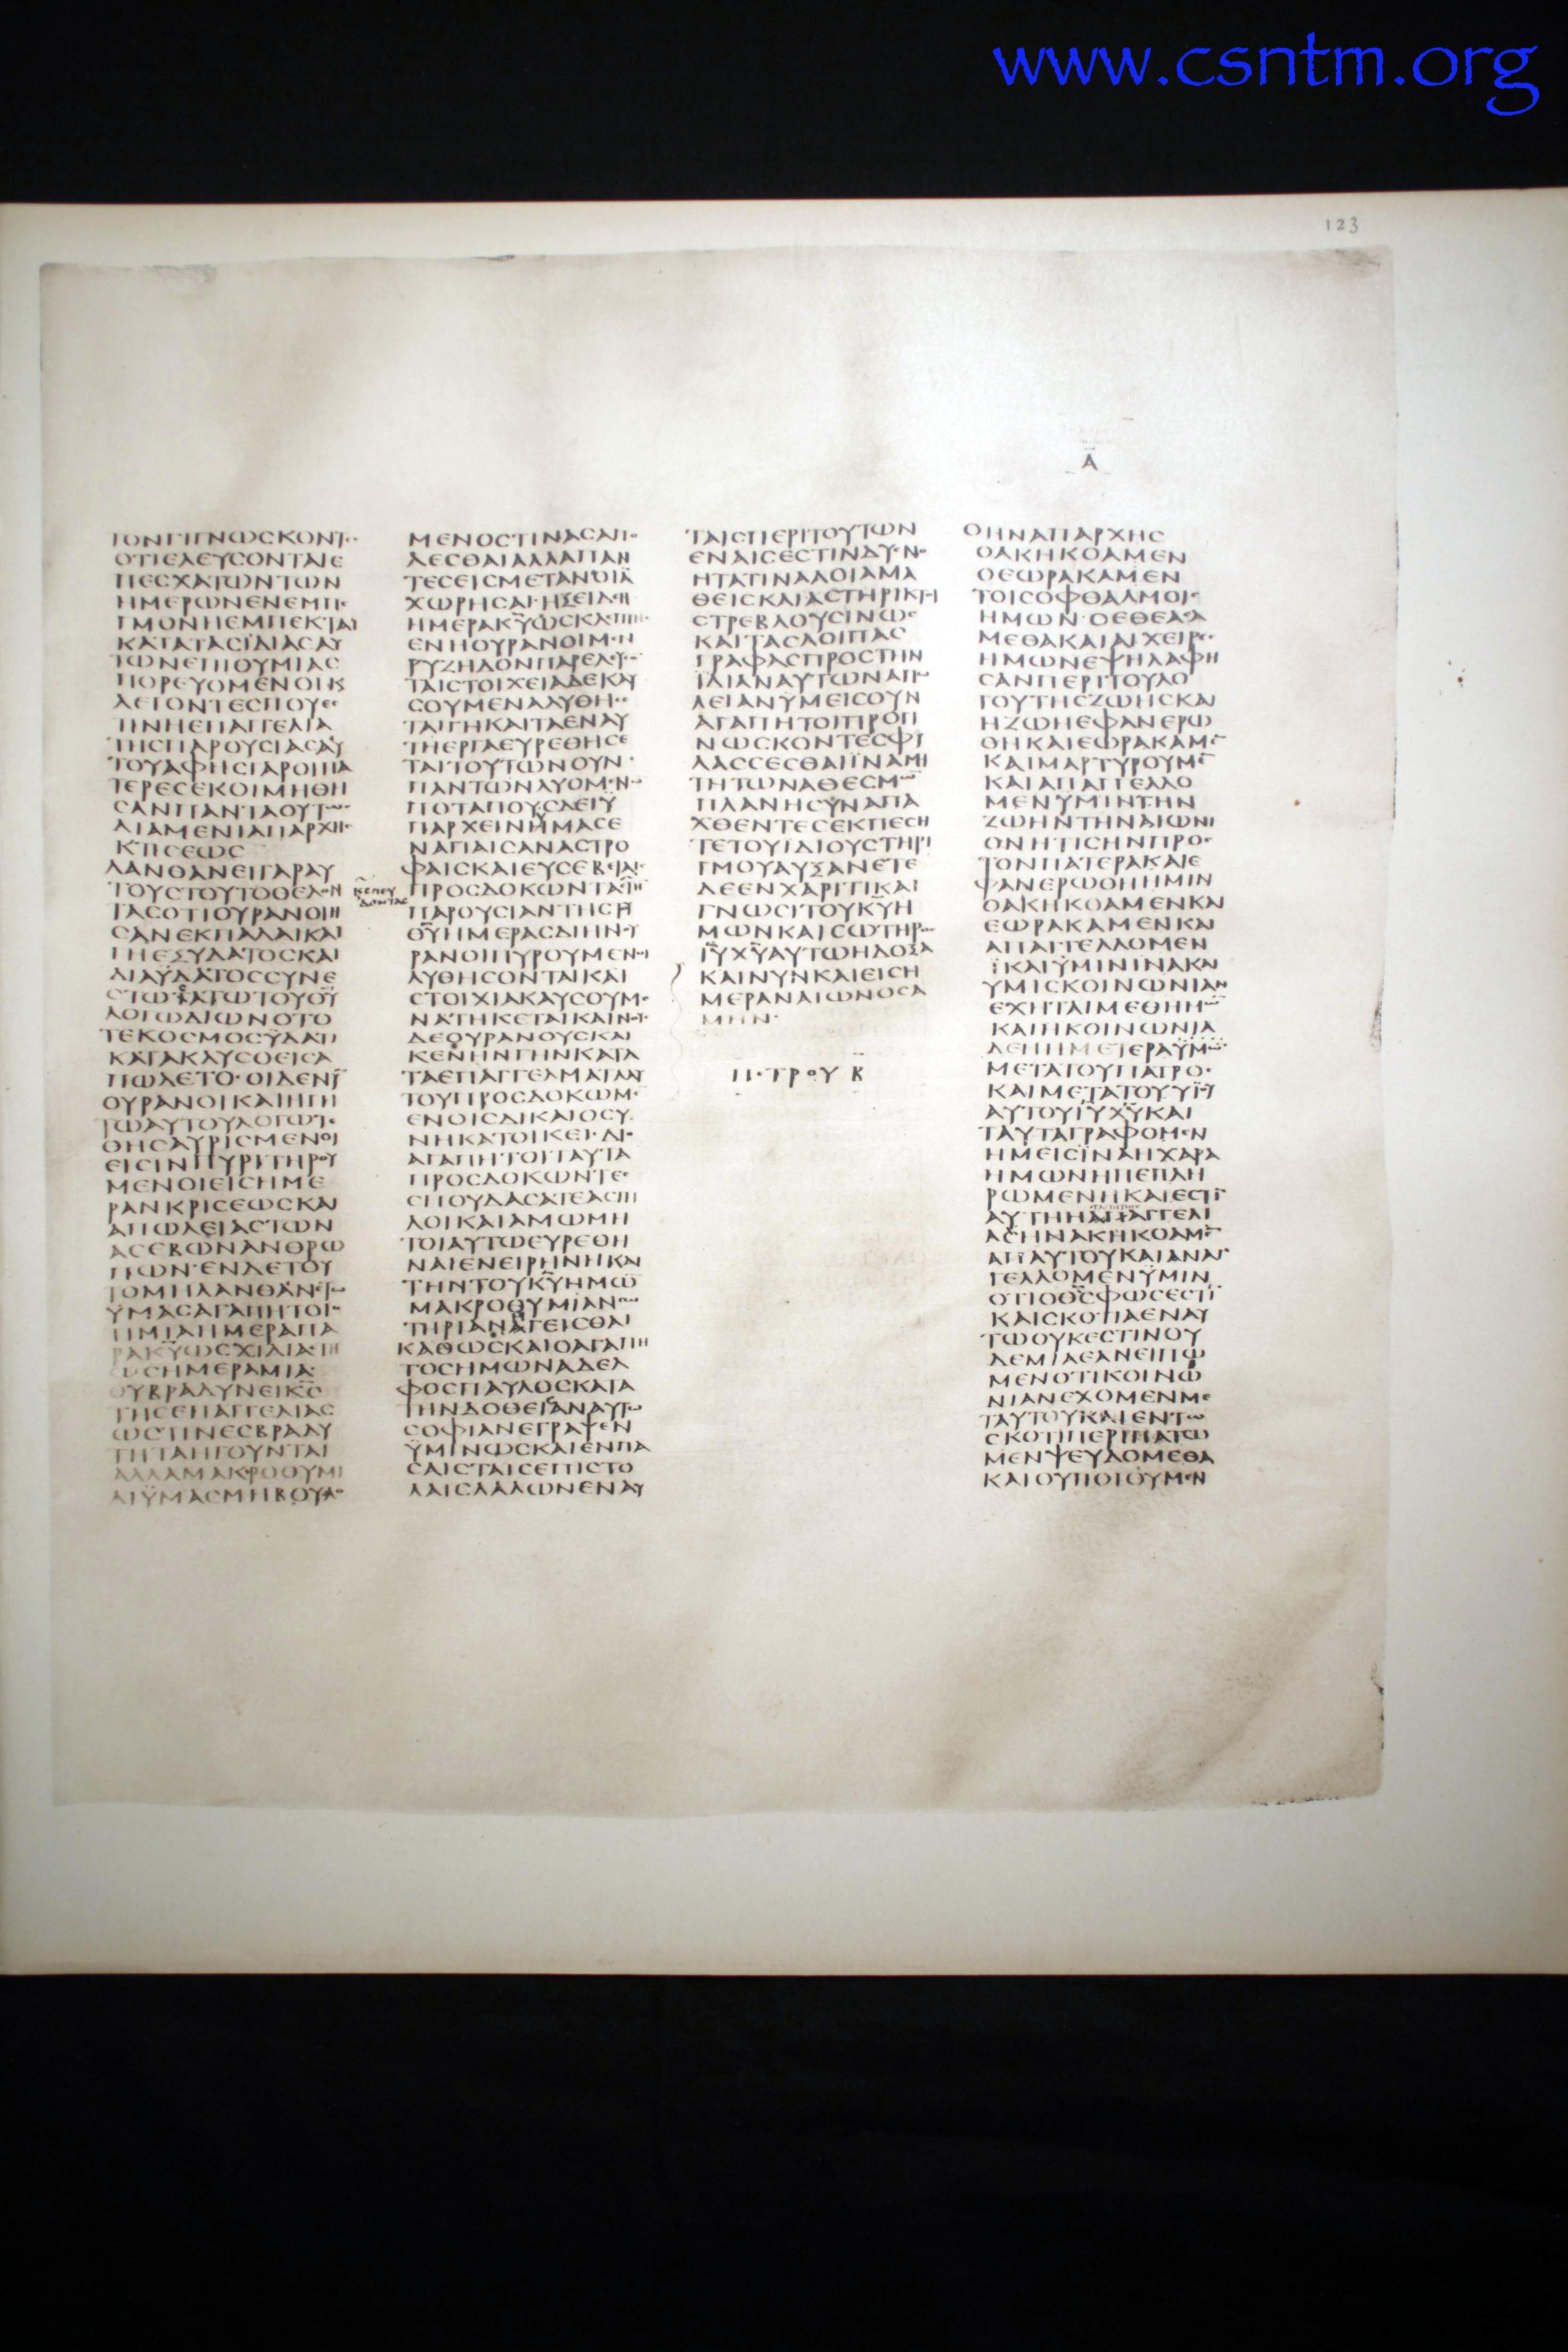 www.csntm.org
123
Α
ΤΟΝΓΙΓΝΩϹΚΟΝΤ
ΟΤΙΕΛΕΥϹΟΝΤΑΙΕ
ΠΕϹΧΑΤΩΝΤΩΝ
ΗΜΕΡΩΝΕΝΕΜΠΕ
ΓΜΟΝΗΕΜΠΕΚΤΑΙ
ΚΑΤΑΤΑϹΪΔΙΑϹΑΥ
ΤΩΝΕΠΙΘΥΜΙΑϹ
ΠΟΡΕΥΟΜΕΝΟΙΚ
ΛΕΓΟΝΤΕϹΠΟΥΕϹ
ΤΙΝΗΕΠΑΓΓΕΛΙΑ
ΤΗϹΠΑΡΟΥϹΙΑϹΑΥ
ΤΟΥΑΦΗϹΓΑΡΟΙΠΑ
ΤΕΡΕϹΕΚΟΙΜΗΘΗ
ϹΑΝΠΑΝΤΑΟΥΤΩ
ΔΙΑΜΕΝΙΑΠΑΡΧΗϹ
ΚΤΙϹΕΩϹ
ΛΑΝΘΑΝΕΙΓΑΡΑΥ
ΤΟΥϹΤΟΥΤΟΘΕΛΟΝ
ΤΑϹΟΤΙΟΥΡΑΝΟΙΗ
ϹΑΝΕΚΠΑΛΑΙΚΑΙ
ΓΗΕΞΥΔΑΤΟϹΚΑΙ
ΔΙΑΥΔΑΤΟϹϹΥΝΕ
ϹΤΩΤΑΤΩΤΟΥΘΥ
ΛΟΓΩΔΙΩΝΟΤΟ
ΤΕΚΟϹΜΟϹΥΔΑΤΙ
ΚΑΤΑΚΛΥϹΘΕΙϹΑ
ΠΩΛΕΤΟ·ΟΙΔΕΝΥ
ΟΥΡΑΝΟΙΚΑΙΗΓΗ
ΤΩΑΥΤΟΥΛΟΓΩΤΕ
ΘΗϹΑΥΡΙϹΜΕΝΟΙ
ΕΙϹΙΝΠΥΡΙΤΗΡΟΥ
ΜΕΝΟΙΕΙϹΗΜΕ
ΡΑΝΚΡΙϹΕΩϹΚΑΙ
ΑΠΩΛΕΙΑϹΤΩΝ
ΑϹΕΒΩΝΑΝΘΡΩ
ΠΩΝ·ΕΝΔΕΤΟΥ
ΤΟΜΗΛΑΝΘΑΝΕΤΩ
ΥΜΑϹΑΓΑΠΗΤΟΙ
ΤΙΜΙΑΗΜΕΡΑΠΑ
ΡΑΚΥΩϹΧΙΛΙΑΕΤΗ
ΩϹΗΜΕΡΑΜΙΑ
ΟΥΒΡΑΔΥΝΕΙΚϹ
ΤΗϹΕΠΑΓΓΕΛΙΑϹ
ΩϹΤΙΝΕϹΒΡΑΔΥ
ΤΗΤΑΗΓΟΥΝΤΑΙ
ΑΛΛΑΜΑΚΡΟΘΥΜΙ
ΔΙΫΜΑϹΜΗΒΟΥΛΟ
ΜΕΝΟϹΤΙΝΑϹΑΠΟ
ΛΕϹΘΑΙΑΛΛΑΠΑΝ
ΤΕϹΕΙϹΜΕΤΑΝΟΙΑ
ΧΩΡΗϹΑΙ·ΗΞΕΙΔΕΗ
ΗΜΕΡΑΚΥΩϹΚΛΕΠΤΗϹ
ΕΝΗΟΥΡΑΝΟΙΜΕΝ
ΡΥΖΗΔΟΝΠΑΡΕΛΕΥϹΟ
ΤΑΙϹΤΟΙΧΕΙΑΔΕΚΑΥ
ϹΟΥΜΕΝΑΛΥΘΗϹΕ
ΤΑΙΓΗΚΑΙΤΑΕΝΑΥ
ΤΗΕΡΓΑΕΥΡΕΘΗϹΕ
ΤΑΙΤΟΥΤΩΝΟΥΝ
ΠΑΝΤΩΝΛΥΟΜΕΝΩ
ΠΟΤΑΠΟΥϹΔΕΙΥ
ΠΑΡΧΕΙΝΗΜΑϹΕ
ΝΑΓΙΑΙϹΑΝΑϹΤΡΟ
ΦΑΙϹΚΑΙΕΥϹΕΒΕΙΑΙϹ
ΠΡΟϹΔΟΚΩΝΤΑϹΤΗ
ΠΑΡΟΥϹΙΑΝΤΗϹΤΟΥ
ΘΥΗΜΕΡΑϹΔΙΗΝΟΥ
ΡΑΝΟΙΠΥΡΟΥΜΕΝΟΙ
ΛΥΘΗϹΟΝΤΑΙΚΑΙ
ϹΤΟΙΧΙΑΚΑΥϹΟΥΜΕ
ΝΑΤΗΚΕΤΑΙΚΑΙΝΟΥϹ
ΔΕΟΥΡΑΝΟΥϹΚΑΙ
ΚΕΝΗΝΓΗΝΚΑΤΑ
ΤΑΕΠΑΓΓΕΛΜΑΤΑΑΥ
ΤΟΥΠΡΟϹΔΟΚΩΜΕ
ΕΝΟΙϹΔΙΚΑΙΟϹΥ
ΝΗΚΑΤΟΙΚΕΙ·ΔΙΟ
ΑΓΑΠΗΤΟΙΤΑΥΤΑ
ΠΡΟϹΔΟΚΩΝΤΕϹ
ϹΠΟΥΔΑϹΑΤΕΑϹΠΙ
ΛΟΙΚΑΙΑΜΩΜΗ
ΤΟΙΑΥΤΩΕΥΡΕΘΗ
ΝΑΙΕΝΕΙΡΗΝΗΚΑΙ
ΤΗΝΤΟΥΚΥΗΜΩ
ΜΑΚΡΟΘΥΜΙΑΝϹΩ
ΤΗΡΙΑΝΑΓΕΙϹΘΑΙ
ΚΑΘΩϹΚΑΙΟΑΓΑΠΗ
ΤΟϹΗΜΩΝΑΔΕΛ
ΦΟϹΠΑΥΛΟϹΚΑΤΑ
ΤΗΝΔΟΘΕΙϹΑΝΑΥΤΩ
ϹΟΦΙΑΝΕΓΡΑΨΕΝ
ΫΜΙΝΩϹΚΑΙΕΝΠΑ
ϹΑΙϹΤΑΙϹΕΠΙϹΤΟ
ΛΑΙϹΛΑΛΩΝΕΝΑΥ
ΤΑΙϹΠΕΡΙΤΟΥΤΩΝ
ΕΝΑΙϹΕϹΤΙΝΔΥϹΝΟ
ΗΤΑΤΙΝΑΑΟΙΑΜΑ
ΘΕΙϹΚΑΙΑϹΤΗΡΙΚΤΟΙ
ϹΤΡΕΒΛΟΥϹΙΝΩϹ
ΚΑΙΤΑϹΛΟΙΠΑϹ
ΓΡΑΦΑϹΠΡΟϹΤΗΝ
ΪΔΙΑΝΑΥΤΩΝΑΠΩ
ΛΕΙΑΝΫΜΕΙϹΟΥΝ
ΑΓΑΠΗΤΟΙΠΡΟΓΙ
ΝΩϹΚΟΝΤΕϹΦΥ
ΛΑϹϹΕϹΘΑΙΪΝΑΜΗ
ΤΗΤΩΝΑΘΕϹΜΩ
ΠΛΑΝΗϹΥΝΑΠΑ
ΧΘΕΝΤΕϹΕΚΠΕϹΗ
ΤΕΤΟΥΪΔΙΟΥϹΤΗΡΙ
ΓΜΟΥΑΥΞΑΝΕΤΕ
ΔΕΕΝΧΑΡΙΤΙΚΑΙ
ΓΝΩϹΙΤΟΥΚΥΗ
ΜΩΝΚΑΙϹΩΤΗΡΟϹ
ΙΥΧΥΑΥΤΩΗΔΟΞΑ
ΚΑΙΝΥΝΚΑΙΕΙϹΗ
ΜΕΡΑΝΑΙΩΝΟϹΑ
ΜΗΝ
ΠΕΤΡΟΥ Β
ΟΗΝΑΠΑΡΧΗϹ
ΟΑΚΗΚΟΑΜΕΝ
ΟΕΩΡΑΚΑΜΕΝ
ΤΟΙϹΟΦΘΑΛΜΟΙϹ
ΗΜΩΝ·ΟΕΘΕΑϹΑ
ΜΕΘΑΚΑΙΑΙΧΕΙΡΕϹ
ΗΜΩΝΕΨΗΛΑΦΗ
ϹΑΝΠΕΡΙΤΟΥΛΟ
ΓΟΥΤΗϹΖΩΗϹΚΑΙ
ΗΖΩΗΕΦΑΝΕΡΩ
ΘΗΚΑΙΕΩΡΑΚΑΜΕ
ΚΑΙΜΑΡΤΥΡΟΥΜΕ
ΚΑΙΑΠΑΓΓΕΛΛΟ
ΜΕΝΥΜΙΝΤΗΝ
ΖΩΗΝΤΗΝΑΙΩΝΙ
ΟΝΗΤΙϹΗΝΠΡΟϹ
ΤΟΝΠΑΤΕΡΑΚΑΙΕ
ΦΑΝΕΡΩΘΗΗΜΙΝ
ΟΑΚΗΚΟΑΜΕΝΚΑΙ
ΕΩΡΑΚΑΜΕΝΚΑΙ
ΑΠΑΓΓΕΛΛΟΜΕΝ
ΚΑΙΫΜΙΝΙΝΑΚΑΙ
ΥΜΙϹΚΟΙΝΩΝΙΑΝ
ΕΧΗΤΑΙΜΕΘΗΜΩ
ΚΑΙΗΚΟΙΝΩΝΙΑ
ΔΕΗΗΜΕΤΕΡΑΫΜΩ
ΜΕΤΑΤΟΥΠΑΤΡΟϹ
ΚΑΙΜΕΤΑΤΟΥΥΙΟΥ
ΑΥΤΟΥΙΥΧΥΚΑΙ
ΤΑΥΤΑΓΡΑΦΟΜΕΝ
ΗΜΕΙϹΪΝΑΗΧΑΡΑ
ΗΜΩΝΗΠΕΠΛΗ
ΡΩΜΕΝΗΚΑΙΕϹΤΙ
ΑΥΤΗΗΑΠΑΓΓΕΛΙ
ΑϹΗΝΑΚΗΚΟΑΜΕ
ΑΠΑΥΤΟΥΚΑΙΑΝΑΓ
ΓΕΛΛΟΜΕΝΥΜΙΝ
ΟΤΙΟΘϹΦΩϹΕϹΤΙ
ΚΑΙϹΚΟΤΙΑΕΝΑΥ
ΤΩΟΥΚΕϹΤΙΝΟΥ
ΔΕΜΙΑΕΑΝΕΙΠΩ
ΜΕΝΟΤΙΚΟΙΝΩ
ΝΙΑΝΕΧΟΜΕΝΜΕ
ΤΑΥΤΟΥΚΑΙΕΝΤΩ
ϹΚΟΤΙΠΕΡΙΠΑΤΩ
ΜΕΝΨΕΥΔΟΜΕΘΑ
ΚΑΙΟΥΠΟΙΟΥΜΕΝ